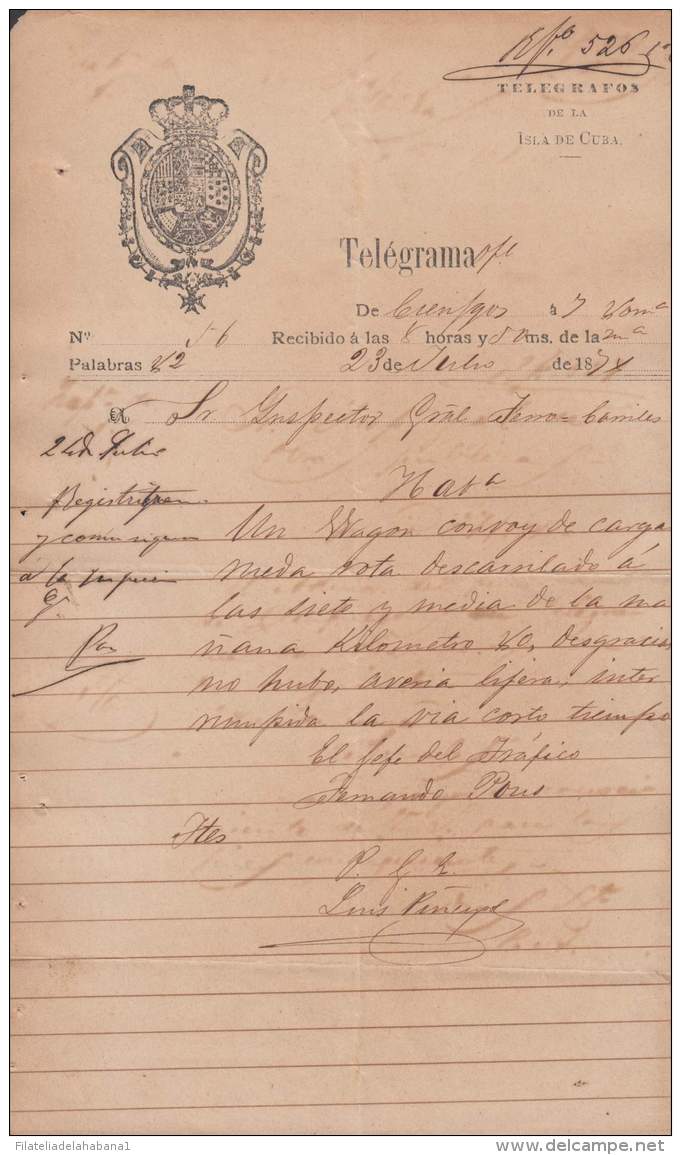 526
TELEGRAFOS
DE LA
ISLA DE CUBA.
Telégrama ofl
De Cienfgos á 7
Nº 56 Recibido á las 8 horas y 50 ms. de la mna
Palabras 42 23 de Julio de 187
A Sr Ynspector Gral Ferro-Carriles
Habª
24 de Julio
y comuniquese
a la
Un Wagon convoy de carga
rueda rota descarrilado á
las siete y media de la ma
ñana Kilometro 40, desgracia
no hubo, averia lijera, inter
rumpida la via corto tiempo
El Jefe del Tráfico
Fernando Pons
P. G. R.
Luis
Filateliadelahabana1
delcampe.net